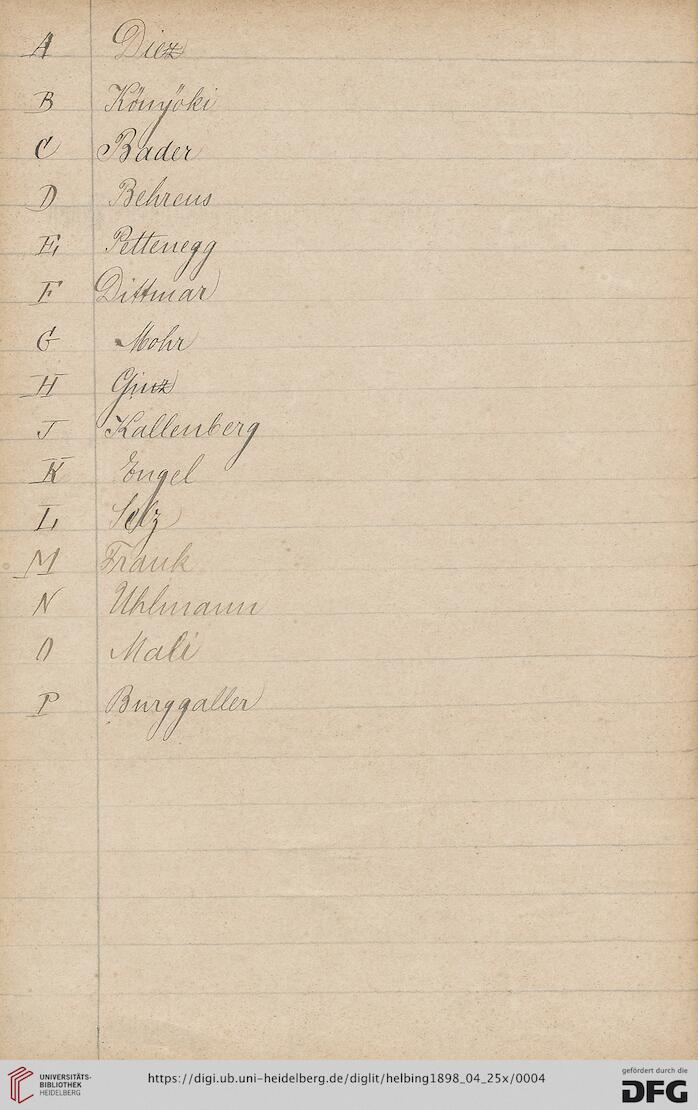 A Diez
B Könyöki
C Bader
D Behrens
E Pettenegg
F Dittmar
G Mohr
H Ginz
J Kallenberg
K Engel
L Selz
M Frank
N Uhlmann
O Mali
P Burggaller
UNIVERSITÄTS-
BIBLIOTHEK
HEIDELBERG
https://digi.ub.uni-heidelberg.de/diglit/helbing1898_04_25x/0004
gefördert durch die
DFG